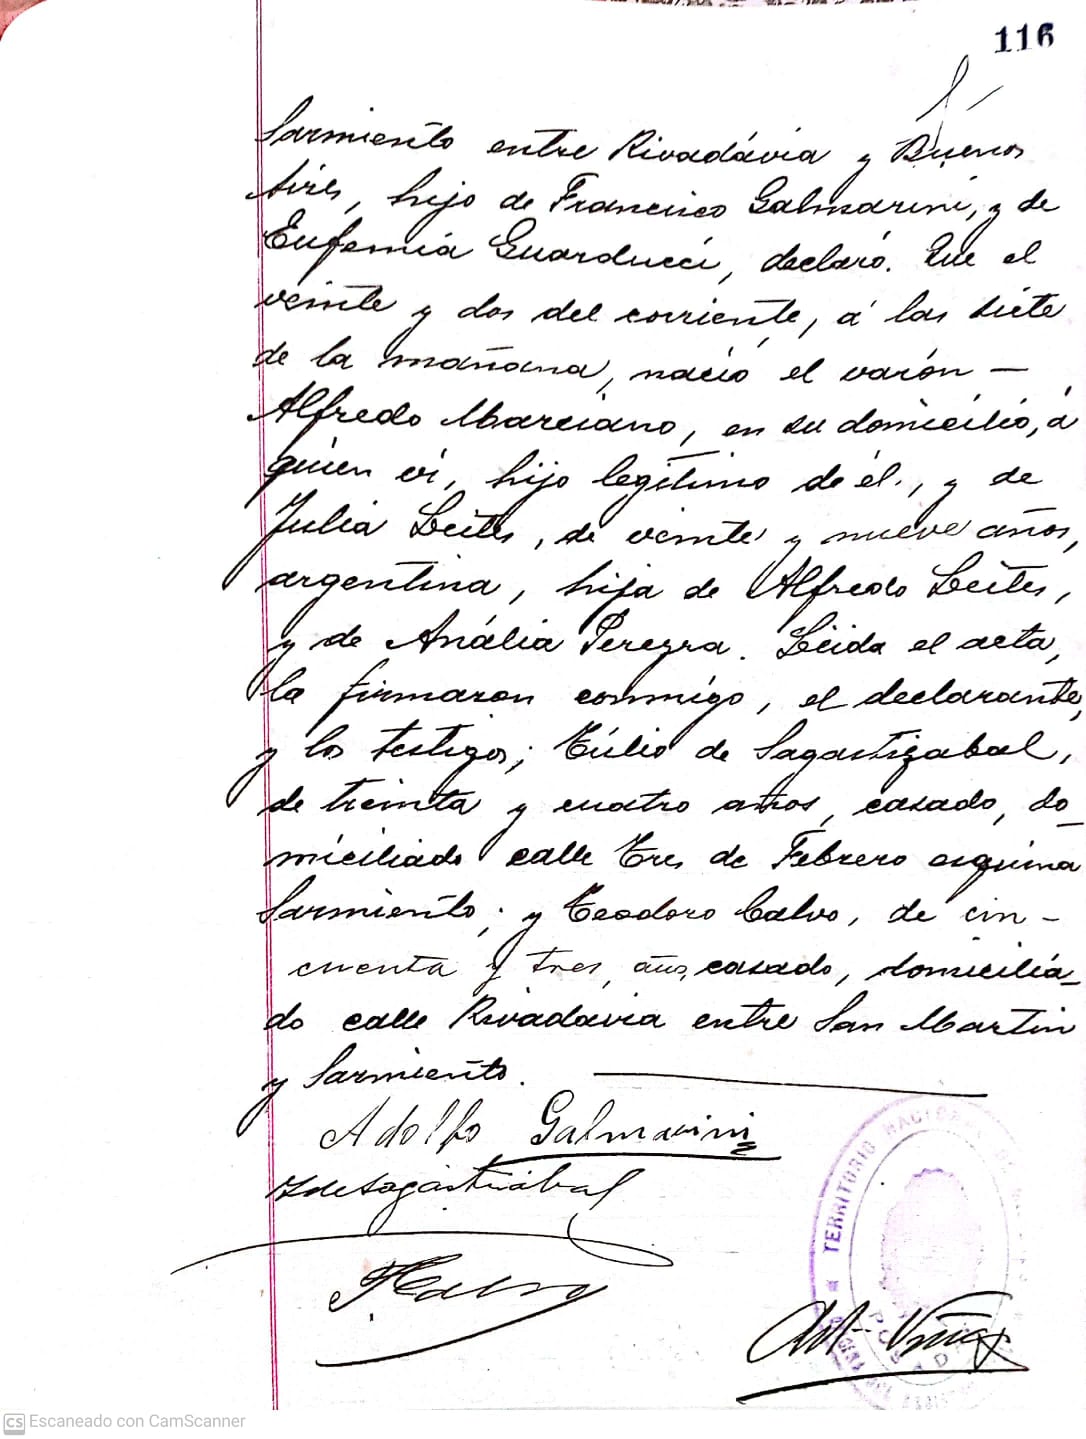 116
Sarmiento entre Rivadávia y Buenos
Aires, hijo de Francisco Galmarini, y de
Eufemia Guarducci, declaró. Que el
veinte y dos del corriente, á las siete
de la mañana, nació el varón —
Alfredo Marciano, en su domicilio, á
quien ví, hijo legítimo de él, y de
Julia Leites, de veinte y nueve años,
argentina, hija de Alfredo Leites,
y de Anália Pereyra. Leida el acta,
la firmaron conmigo, el declarante,
y los testigos; Túlio de Sagastizabal,
de treinta y cuatro años, casado, do_
miciliado calle Tres de Febrero esquina
Sarmiento; y Teodoro Calvo, de cin-
cuenta y tres años, casado, domicilia_
do calle Rivadavia entre San Martin
y Sarmiento.
Adolfo Galmarini
TdeSagastizabal
TCalvo
TERRITORIO NACIONAL DE
POSADAS
CS Escaneado con CamScanner